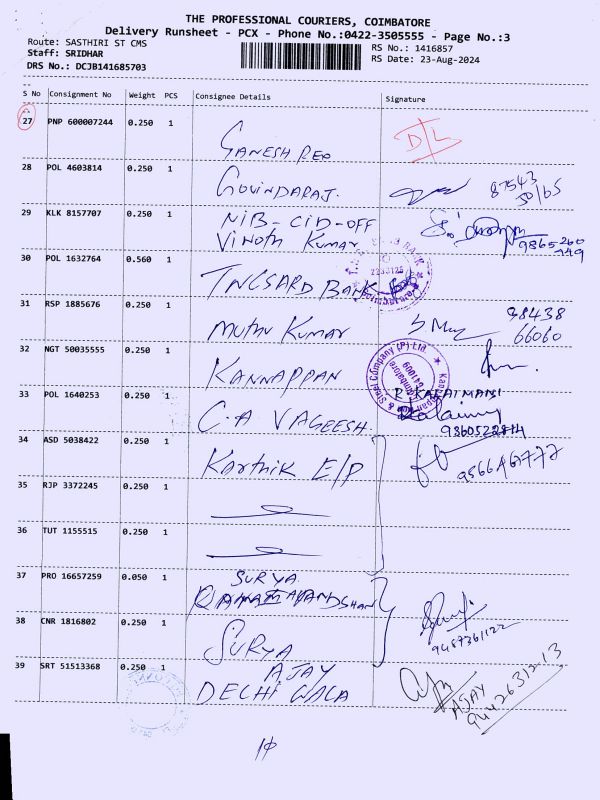 THE PROFESSIONAL COURIERS, COIMBATORE
Delivery Runsheet - PCX - Phone No.:0422-3505555 - Page No.:3
Route: SASTHIRI ST CMS
RS No.: 1416857
Staff: SRIDHAR
RS Date: 23-Aug-2024
DRS No.: DCJB141685703
S No Consignment No Weight PCS Consignee Details Signature
27 PNP 600007244 0.250 1
GANESH REO D/L
28 POL 4603814 0.250 1
GOVINDARAJ. 87543
29 KLK 8157707 0.250 1 NIB-CID-OFF
Vinoth Kumar 9865260
30 POL 1632764 0.560 1
TNCSARD BANK
31 RSP 1885676 0.250 1
Muthu Kumar 98438
66060
32 NGT 50035555 0.250 1
KANNAPPAN
& Steel Company (P) Ltd.
Coimbatore
641009
33 POL 1640253 0.250 1
C.A VAGEESH.
34 ASD 5038422 0.250 1
Karthik E/P
35 RJP 3372245 0.250 1
36 TUT 1155515 0.250 1
37 PRO 16657259 0.050 1 SURYA
38 CNR 1816802 0.250 1
SURYA 9487361122
39 SRT 51513368 0.250 1 AJAY
DELHI WALA AJAY
9442631213